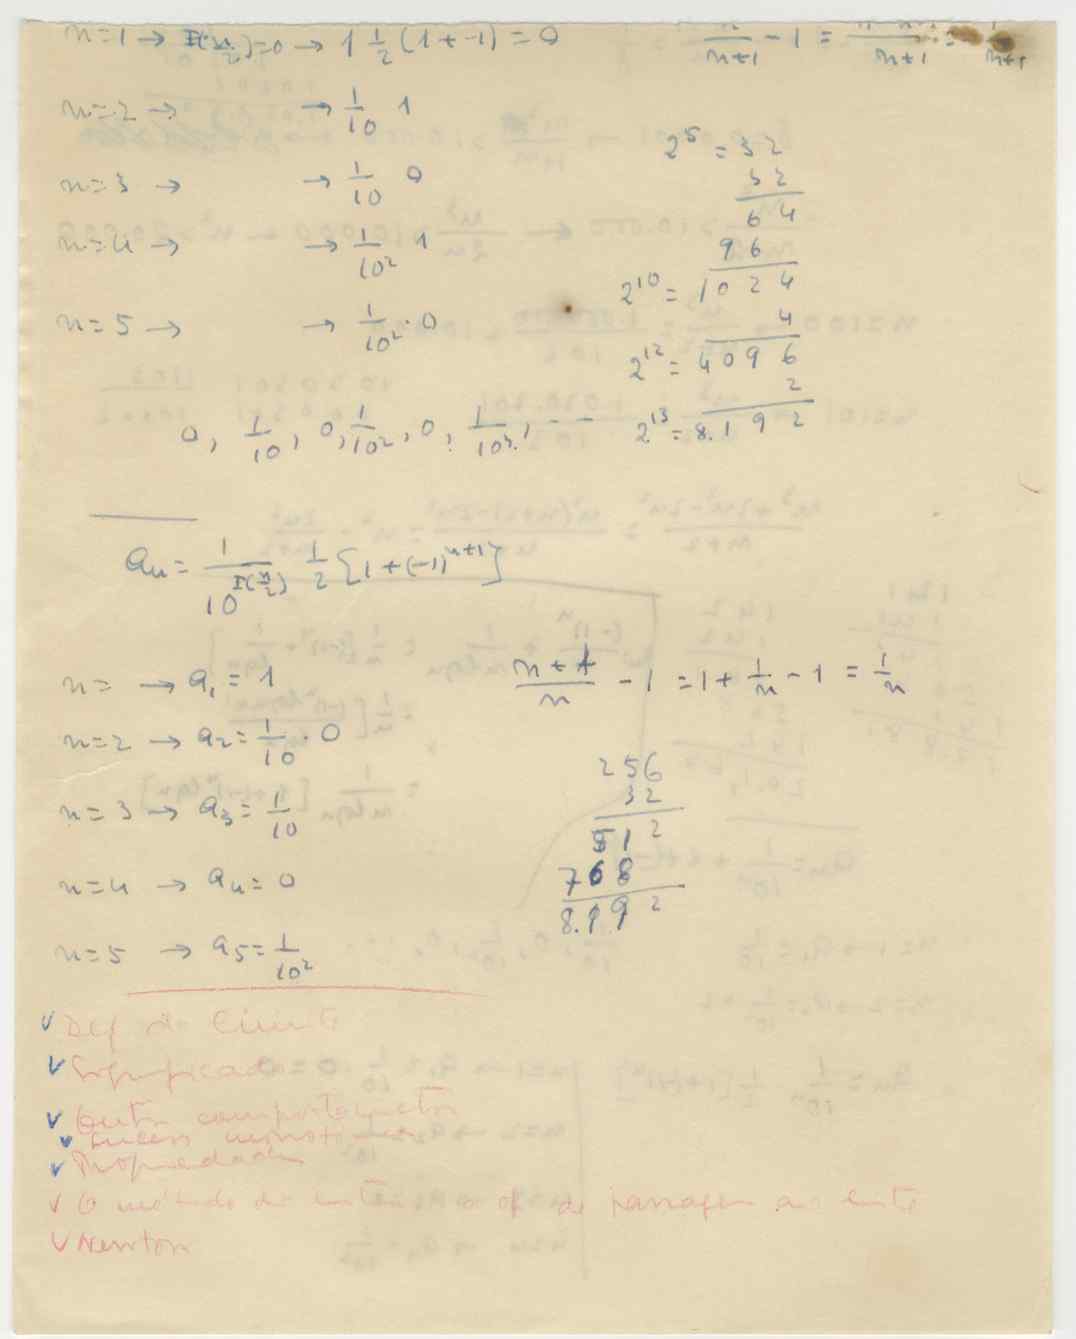 n=1 → I(n/2)=0 → 1 1/2 (1+-1) = 0
n/n+1 - 1 =
n=2 → → 1/10 1
n=3 → → 1/10 0
n=4 → → 1/10² 1
n=5 → → 1/10² · 0
0, 1/10, 0, 1/10², 0, 1/10³, - -
2⁵ = 32
32
64
96
2¹⁰ = 1024
4
2¹² = 4096
2
2¹³ = 8.192
an = 1/10^I(n/2) 1/2 [1+(-1)ⁿ⁺¹]
n= → a₁ = 1
n+1/n - 1 = 1 + 1/n - 1 = 1/n
n=2 → a₂ = 1/10 · 0
n=3 → a₃ = 1/10
n=4 → a₄ = 0
n=5 → a₅ = 1/10²
256
32
512
768
8.192
v Def de limite
v Significado
v Outros comportamentos
v Sucess monot
v Propriedades
v O método dos limites e op de passagem ao limite
v Newton